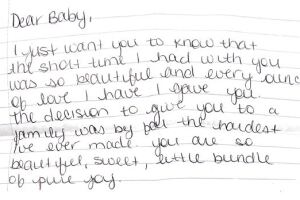 Dear Baby,
I just want you to know that
the short time I had with you
was so beautiful and every ounc
of love I have I gave you.
the decision to give you to a
family was by far the hardest
I've ever made. you are so
beautiful, sweet, little bundle
of pure joy.